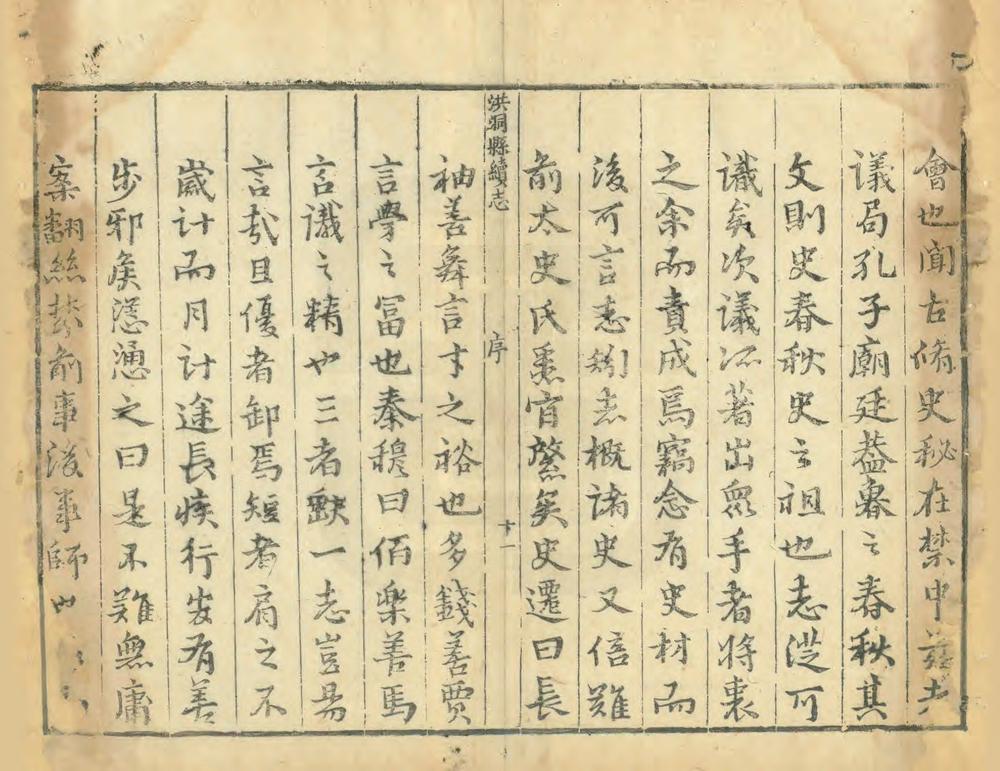 會也聞古脩史秘在禁中茲夫
議局孔子廟廷葢魯之春秋其
文則史春秋史之祖也志從可
識矣次議冺著出眾手者將裏
之余而責成焉竊念有史材而
後可言志矧志概諸史又信難
前太史氏悉宦蔡矣史遷曰長
洪洞縣續志
序
十一
袖善舞言才之裕也多錢善賈
言學之冨也秦穆曰佰樂善馬
言識之精也三者缺一志豈易
言哉且優者卸焉短者肩之不
歲計而月計途長疾行安有善
步邪矦慫慂之曰是不難無庸
案翻絲棼前事後事師也